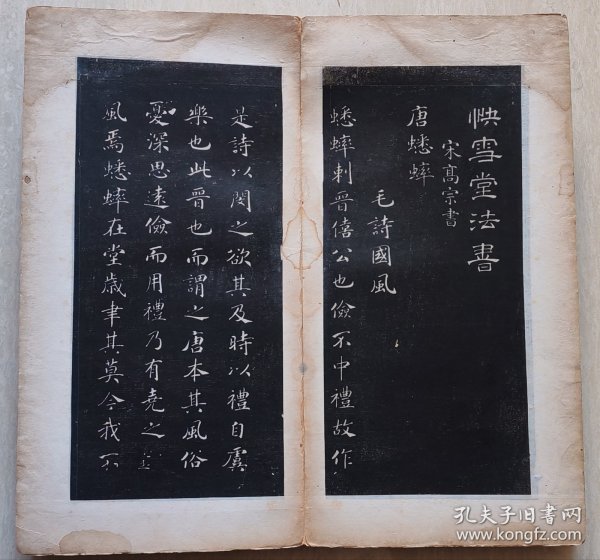 快雪堂法書
宋髙宗書
唐蟋蟀
毛詩國風
蟋蟀刺晉僖公也儉不中禮故作
是詩以閔之欲其及時以禮自虞
樂也此晉也而謂之唐本其風俗
憂深思遠儉而用禮乃有堯之
風焉蟋蟀在堂歲聿其莫今我不
孔夫子旧书网
www.kongfz.com